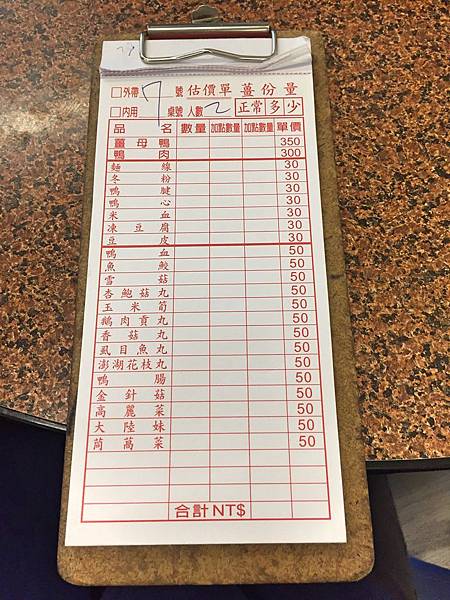 □外帶 7 號 估價單 薑份量
□內用 桌號 人數 2 正常 多 少
品名 數量 加點數量 加點數量 單價
薑母鴨 350
鴨肉 300
麵線 30
冬粉 30
鴨腱 30
鴨心 30
米血 30
凍豆腐 30
豆皮 30
鴨血 50
魚餃 50
雪菇 50
杏鮑菇丸 50
玉米筍 50
鵝肉貢丸 50
香菇丸 50
虱目魚丸 50
澎湖花枝丸 50
鴨腸 50
金針菇 50
高麗菜 50
大陸妹 50
茼萵菜 50
合計 NT$